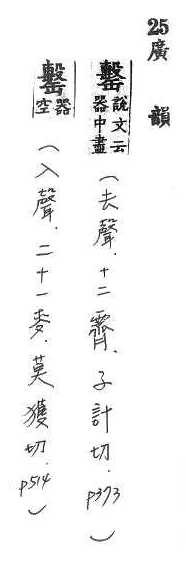 25廣韻
罊說文云器中盡(去聲.十二霽.子計切.p373)
罊器空(入聲.二十一麥.莫獲切.p514)